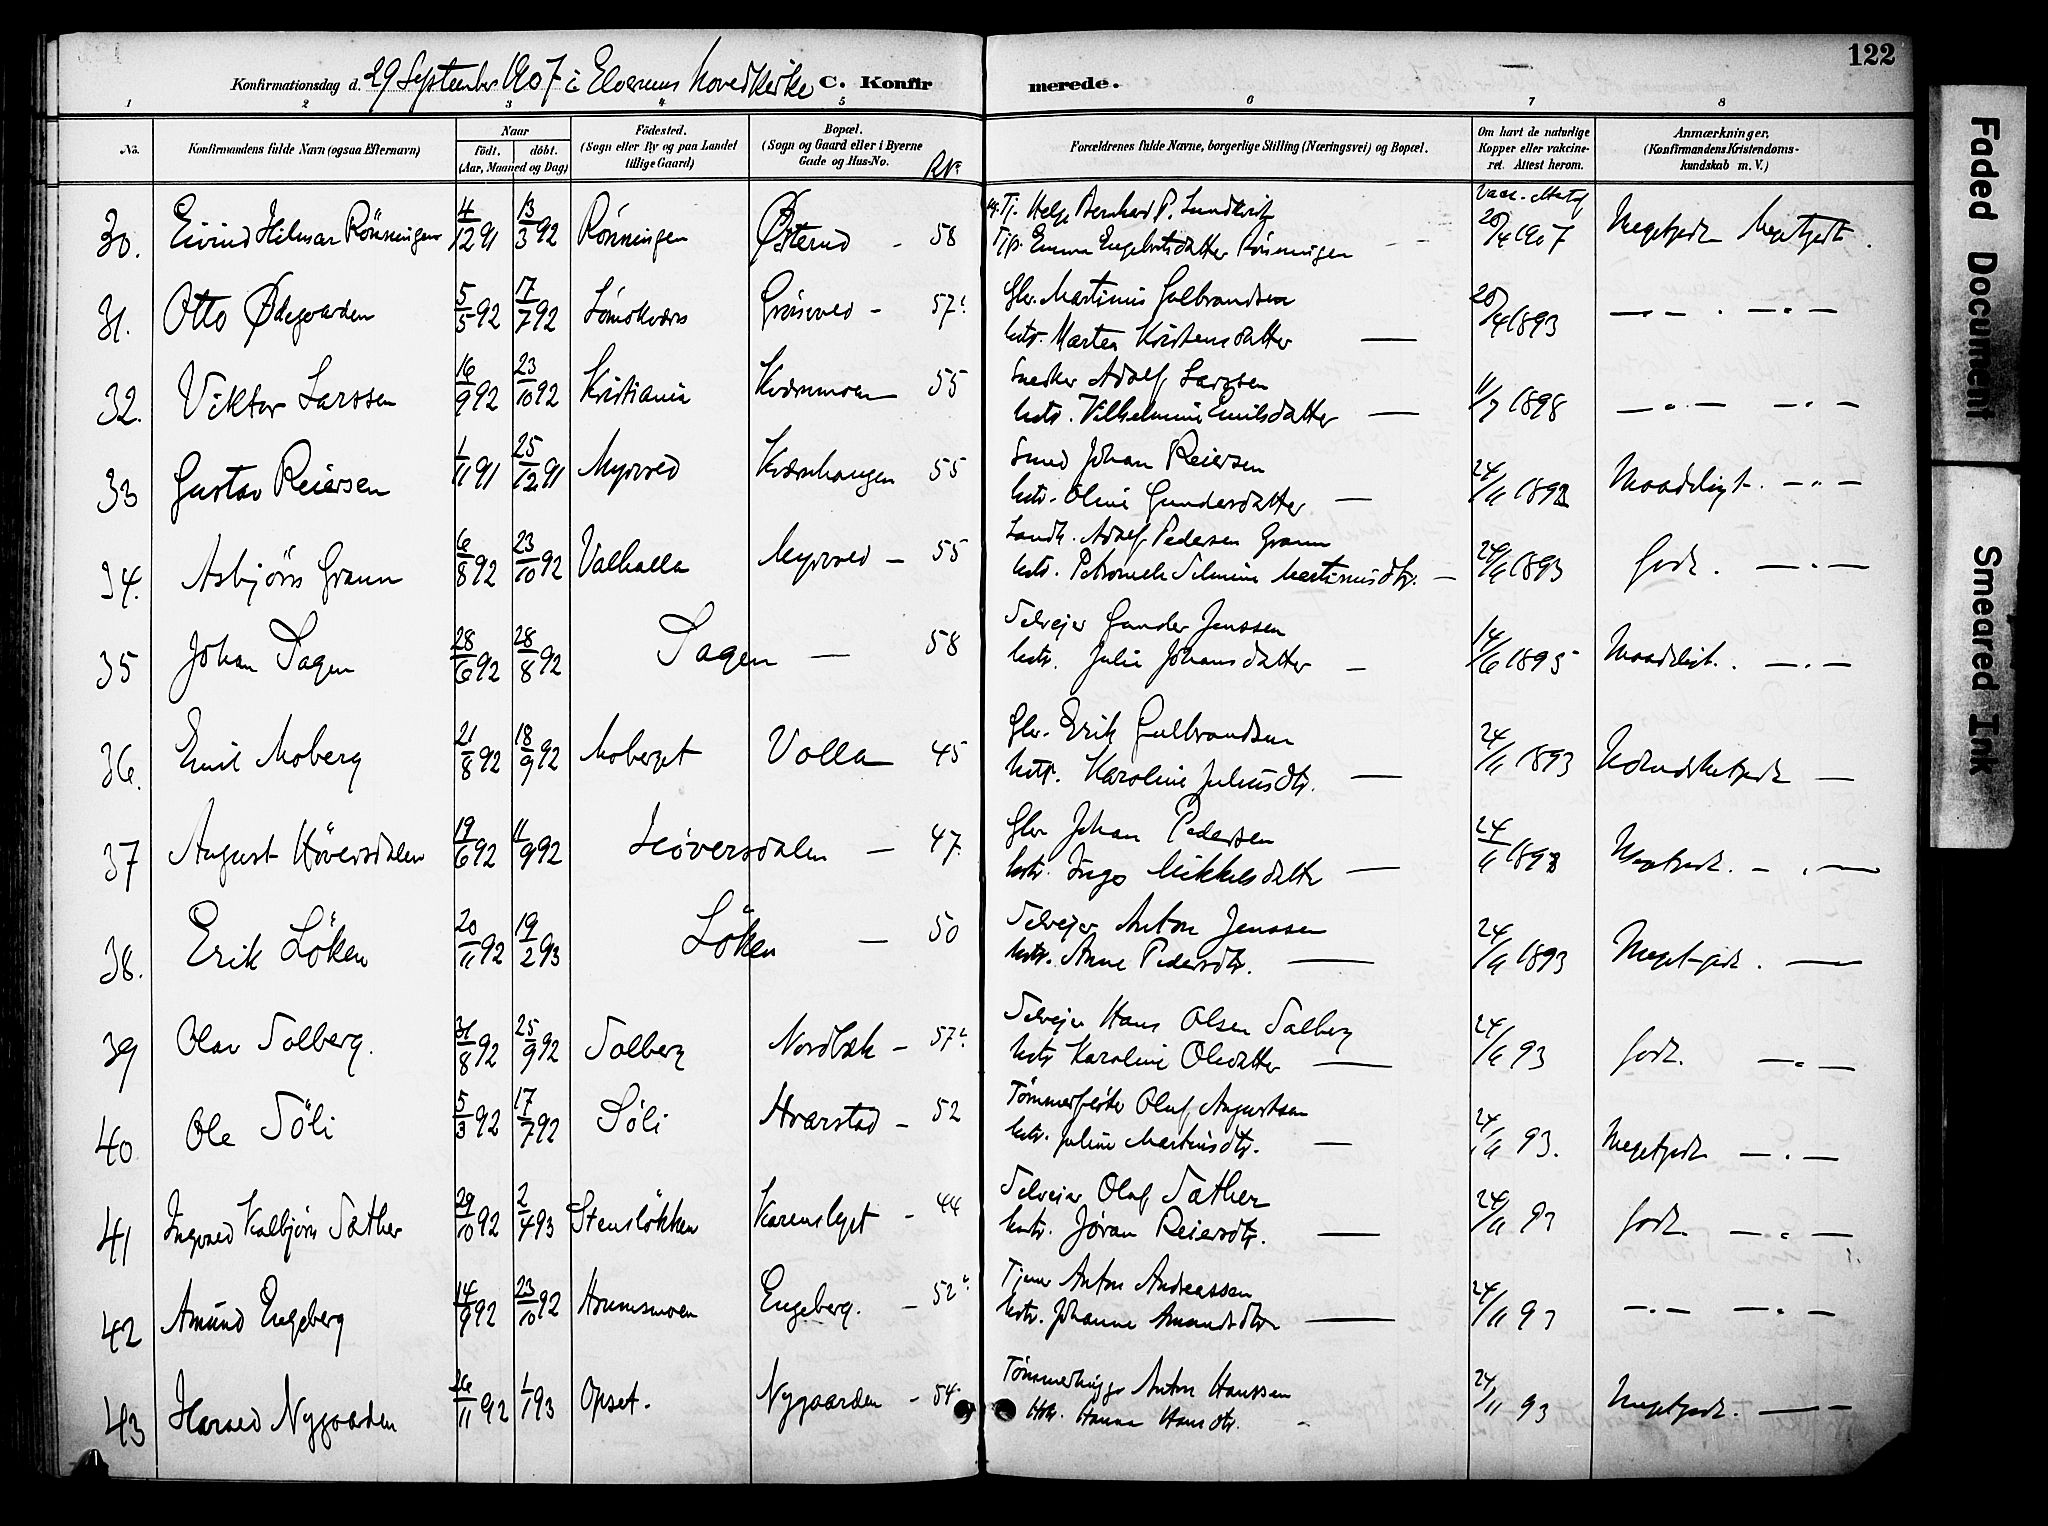 122
Konfirmationsdag d. 29 September 1907 i Elverums Hovedkirke C. Konfirmerede.
1 2 3 4 5 6 7 8
No. Konfirmandens fulde Navn (ogsaa Efternavn) Naar født. døbt. (Aar, Maaned og Dag) Födested. (Sogn eller By og paa Landet tillige Gaard) Bopæl. (Sogn og Gaard eller i Byerne Gade og Hus-No. R.N. Forældrenes fulde Navne, borgerlige Stilling (Næringsvei) og Bopæl. Om havt de naturlige Kopper eller vakcineret. Attest herom. Anmærkninger. (Konfirmandens Kristendomskundskab m. V.)
30. Eivind Hilmar Rönningen 4/12 91 13/3 92 Rönningen Østerud - 58 Tj. Helge Bernhard P. Lundkvist Vacc. Attest
Emma Engebretsdatter Rönningen 20/4 1907 Megetgodt Megetgodt.
31. Otto Ødegaarden 5/5 92 17/7 92 - 57 Gbr. Martinus Gulbrandsen
hstr. Marten Kristensdatter — 20/4 1893 — . — . — . —
32. Viktor Larssen 16/9 92 23/10 92 Kristiania Kværnmoen 55 Snedker Adolf Larssen
hstr. Vilhelmine Emilsdatter — 11/7 1898 — . — — . —
33 Gustav Reiersen 1/11 91 25/12 91 Myrvold Kværnhaugen 55 Smed Johan Reiersen
hstr. Oline Gundersdatter — 24/11 1892 Maadeligt. — . —
34. Asbjörn Grann 6/8 92 23/10 92 Valhalla Myrvold — 55 Landh. Adolf Pedersen Grann
hstr. Petronelle Selmine Martinusdtr. — 24/11 1893 Godt. — . —
35 Johan Sagen 28/6 92 28/8 92 Sagen — 58 Selveier Gunder Jenssen
hstr. Julie Johansdatter — 14/6 1895 Maadeligt. — . —
36. Emil Moberg 21/8 92 18/9 92 Moberget Volla 45 Gbr. Erik Gulbrandsen
hstr. Karoline Juliusdtr. — 24/11 1893 Udmerketgodt —
37 August Höversdalen 19/6 92 11/9 92 Höversdalen — 47. Gbr. Johan Pedersen
hstr. Inga Mikkelsdatter — 24/11 1893 Megetgodt. — . —
38. Erik Löken 20/11 92 19/2 93 Löken — 50 Selveier Anton Jenssen
hstr. Anne Pedersdtr. — 24/11 1893 Megetgodt. —
39 Olav Solberg. 31/8 92 25/9 92 Solberg Nordbæk — 57 Selveier Hans Olsen Solberg
hstr. Karoline Olsdatter — 24/11 93 Godt. — . —
40 Ole Söli 5/3 92 17/7 92 Söli Hvarstad — 52 Tömmerfløter Oluf Augustsen
hstr. Juline Martinusdtr. — 24/11 93. Megetgodt — . —
41 Ingvald Kolbjörn Sæther 29/10 92 2/4 93 Stenslökken Karenslyst — 44 Selveier Oluf Sæther
hstr. Jøran Reiersdtr. — 24/11 93 Godt. — . —
42 Amund Engeberg 14/9 92 23/10 92 Hummsmoen Engeberg. — 52 Tjener Anton Andreassen
hstr. Johanne Amundsdtr — 24/11 93 — . — — . —
43 Harald Nygaarden 26/11 92 1/1 93 Opset. Nygaarden — 54 Tömmerhugger Anton Hanssen
Hstr. Hanna Hansdtr. 24/11 93 Megetgodt. — —
Faded Document
Smeared Ink